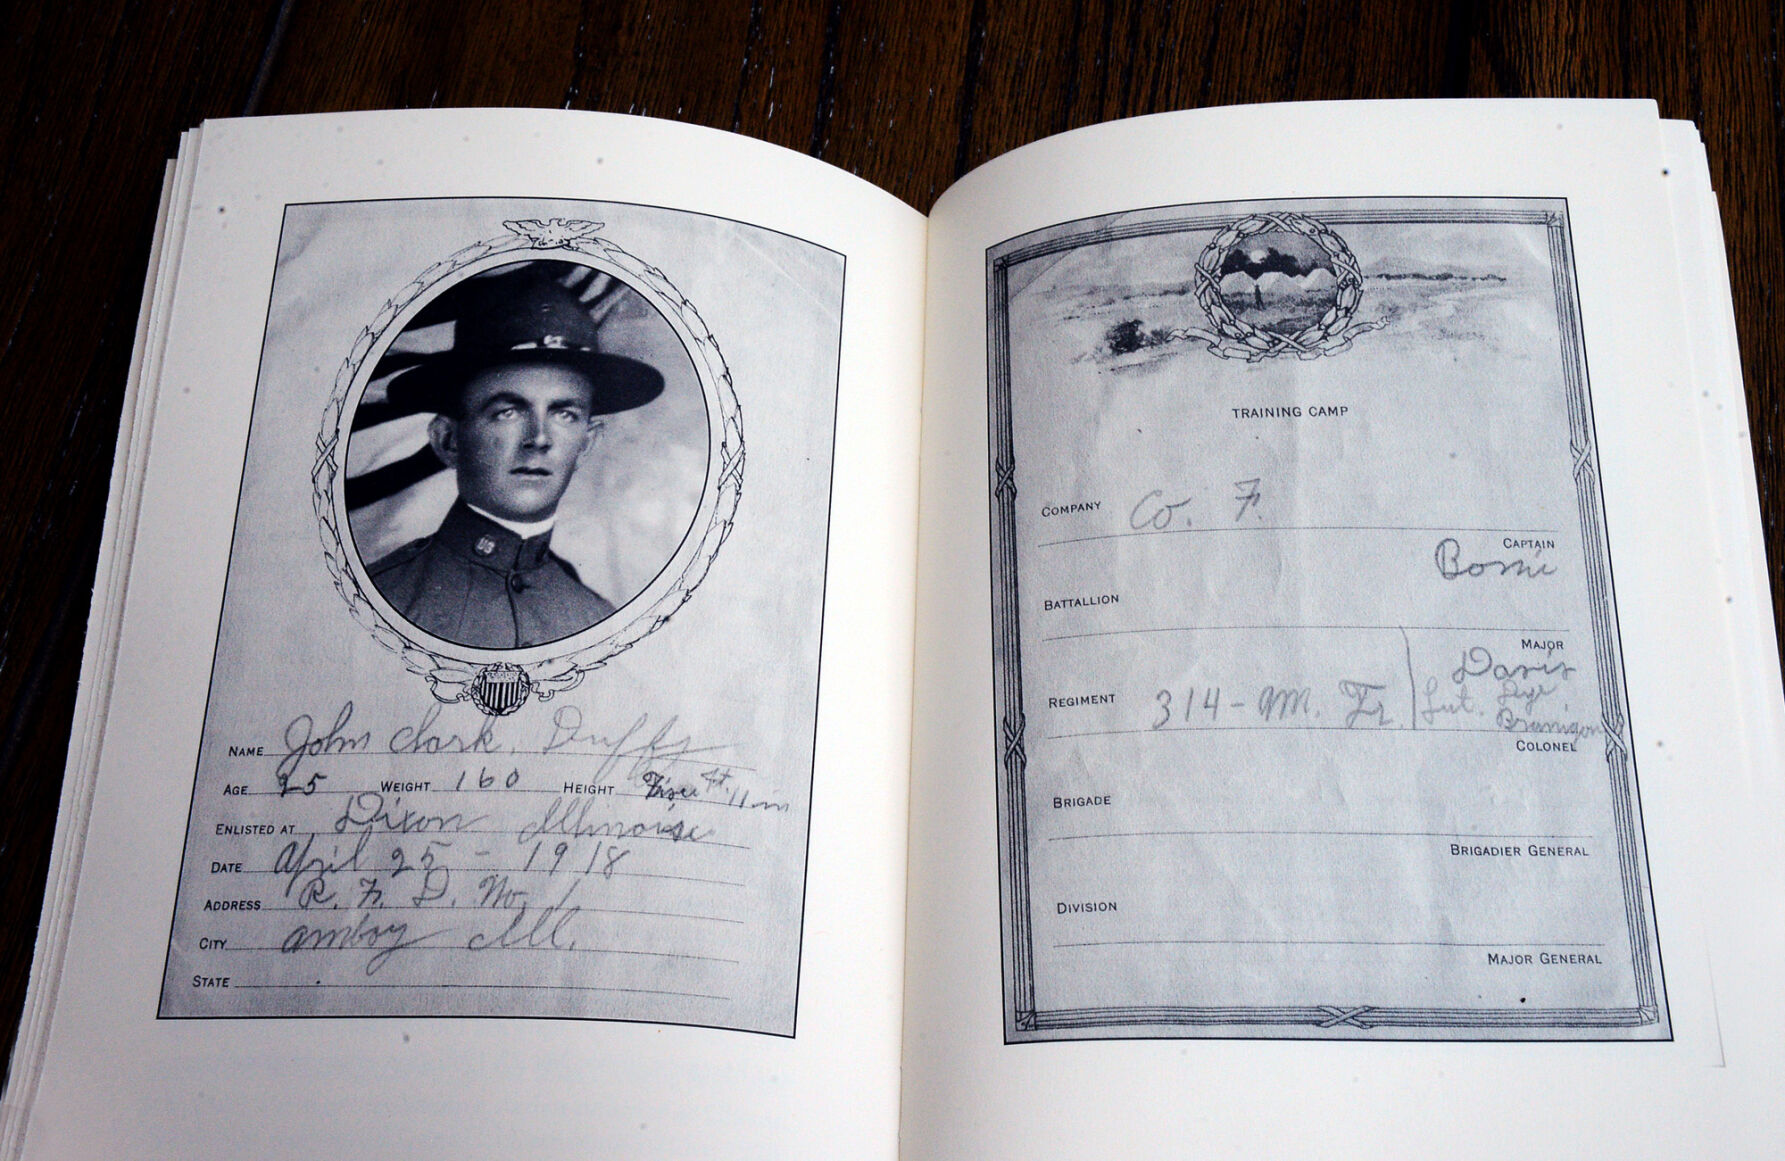 NAME John Clark. Duffy
AGE 25 WEIGHT 160 HEIGHT Five Ft. 11 in
ENLISTED AT Dixon Illinois
DATE April 25 - 1918
ADDRESS R. F. D. No. 1
CITY Amboy Ill.
STATE
TRAINING CAMP
COMPANY Co. F.
CAPTAIN
BATTALLION
MAJOR
Davis
REGIMENT 314 - M. Tr.
COLONEL
BRIGADE
BRIGADIER GENERAL
DIVISION
MAJOR GENERAL